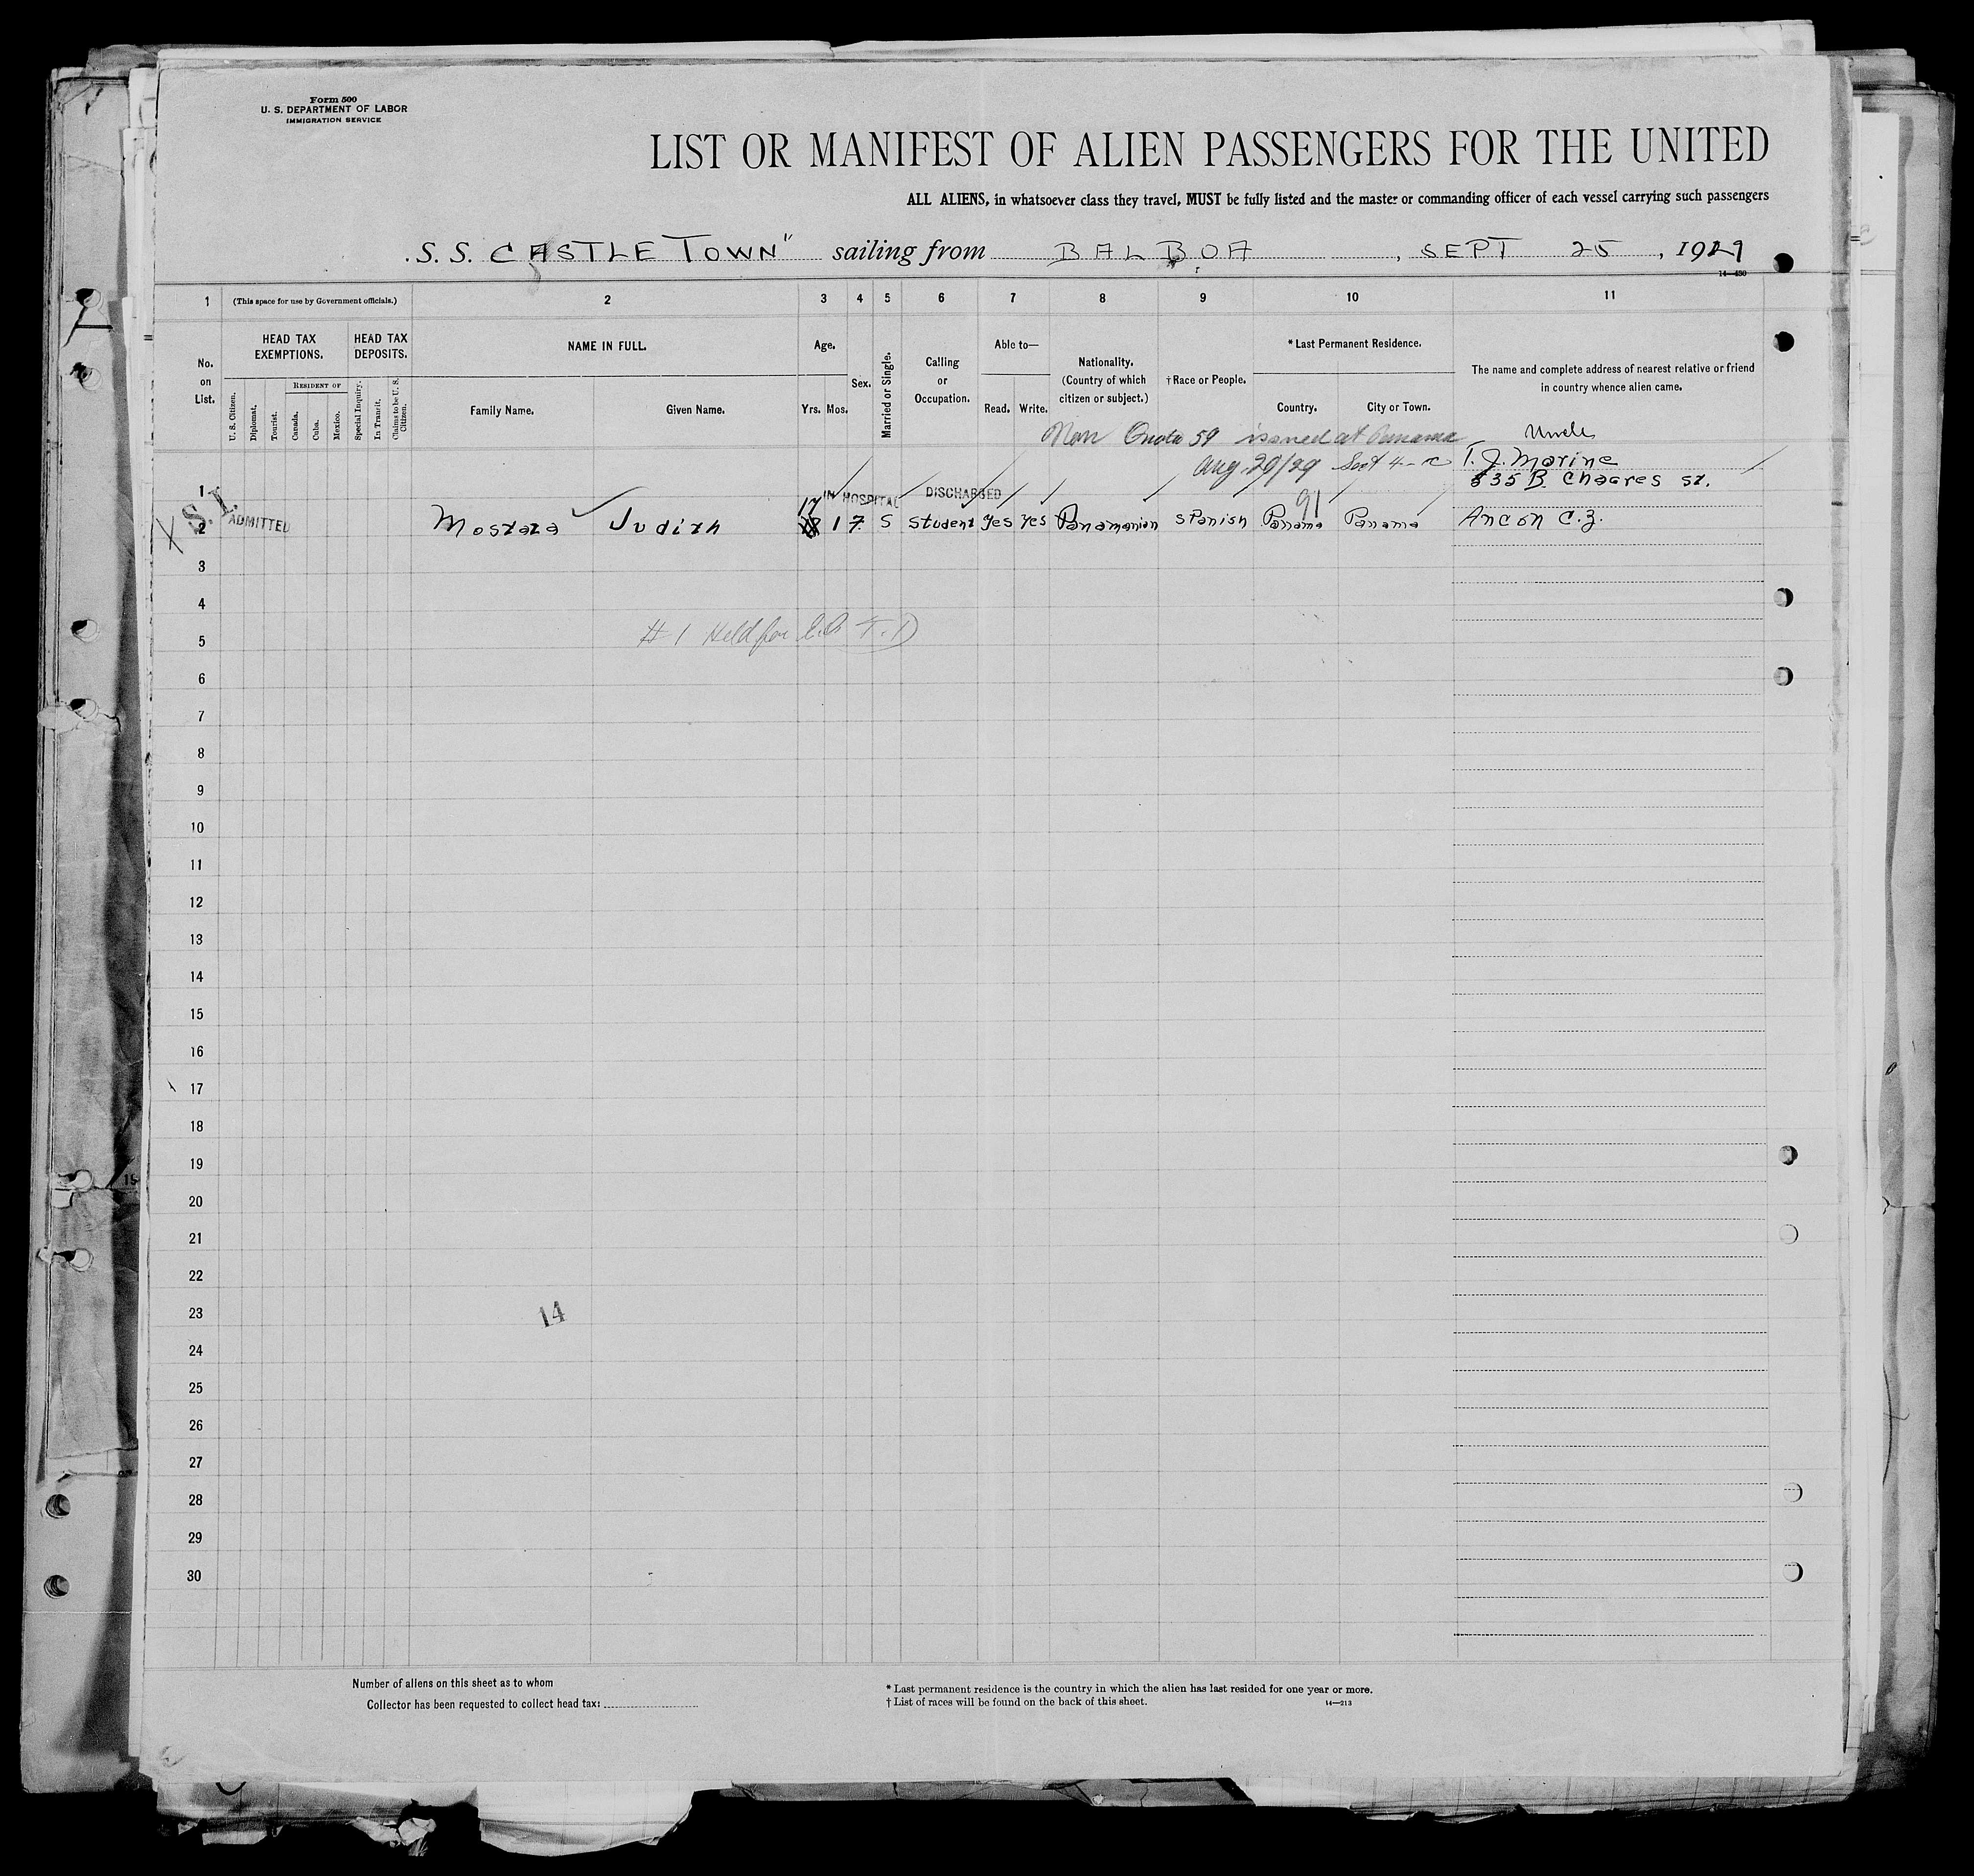 Form 500
U. S. DEPARTMENT OF LABOR
IMMIGRATION SERVICE
LIST OR MANIFEST OF ALIEN PASSENGERS FOR THE UNITED
ALL ALIENS, in whatsoever class they travel, MUST be fully listed and the master or commanding officer of each vessel carrying such passengers
S. S. CASTLE TOWN" sailing from BALBOA, SEPT 25, 1929
14—430
1 (This space for use by Government officials.) 2 3 4 5 6 7 8 9 10 11
No. on List.
HEAD TAX EXEMPTIONS.
HEAD TAX DEPOSITS.
RESIDENT OF
U. S. Citizen.
Diplomat.
Tourist.
Canada.
Cuba.
Mexico.
Special Inquiry.
In Transit.
Claims to be U. S. Citizen.
NAME IN FULL.
Family Name.
Given Name.
Age.
Yrs. Mos.
Sex.
Married or Single.
Calling or Occupation.
Able to—
Read. Write.
Nationality. (Country of which citizen or subject.)
†Race or People.
* Last Permanent Residence.
Country.
City or Town.
The name and complete address of nearest relative or friend in country whence alien came.
Non Quota 59 issued at Panama
Uncle
Aug 29/29 Sept 4
T. J. Marine
1
835 B Chagres St.
S.I.
17
IN HOSPITAL
DISCHARGED
91
X
ADMITTED
2
Judith 1 7 S Student yes yes Panamanian Spanish Panama Panama Ancon C.Z.
3
4
# 1 Held for
5
6
7
8
9
10
11
12
13
14
15
16
17
18
19
20
21
22
23
14
24
25
26
27
28
29
30
Number of aliens on this sheet as to whom
Collector has been requested to collect head tax:
* Last permanent residence is the country in which the alien has last resided for one year or more.
† List of races will be found on the back of this sheet.
14—213